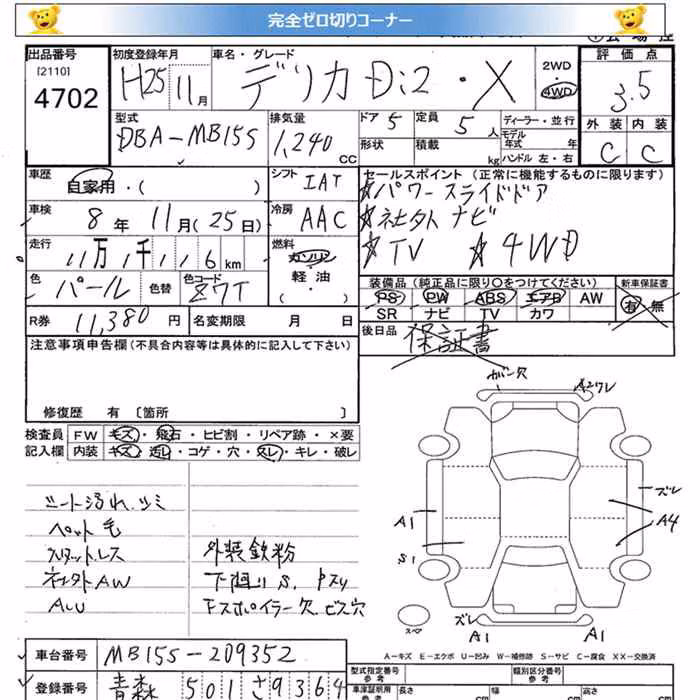 完全ゼロ切りコーナー
出品番号
[2110]
4702
初度登録年月
H25 11月
車名・グレード
デリカ D:2・X
2WD
4WD
評価点
3.5
外装 内装
C C
型式
DBA-MB15S
排気量
1,240 CC
ドア 5
定員 5人
形状
積載 kg
ディーラー・並行
モデル年式 年式
ハンドル 左・右
車歴
自家用・( )
シフト
IAT
セールスポイント(正常に機能するものに限ります)
☆パワースライドドア
☆社外ナビ
☆TV ☆4WD
車検
8年 11月(25日)
冷房
AAC
走行
11万1千116km
燃料
ガソリン・軽油
( )
色
パール
色替
色コード
Z7T
装備品(純正品に限り○をつけてください)
PS PW ABS エアB AW
SR ナビ TV カワ
新車保証書
有・無
R券 11,380円
名変期限 月 日
後日品 保証書
注意事項申告欄(不具合内容等は具体的に記入して下さい)
修復歴 有 〔箇所 〕
検査員記入欄
FW キズ・飛石・ヒビ割・リペア跡・×要
内装 キズ・汚レ・コゲ・穴・スレ・キレ・破レ
シート汚れ、シミ
ペット毛
スタットレス
社外AW
AU
外装鉄粉
下廻りS、
Fスポイラー欠、ビス穴
カバー欠
A2ワレ
A1
S1
ズレ
A4
スペア
ズレ
A1
A1
A-キズ E-エクボ U-凹み W-補修跡 S-サビ C-腐食 XX-交換済
車台番号 MB15S-209352
登録番号 青森 501 さ 9364
型式指定番号
類別区分番号
車庫証明用参考
長さ cm
幅 cm
高さ cm